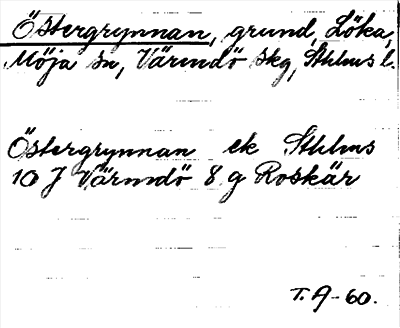 Östergrynnan, grund, Löka,
Möja sn, Värmdö skg, Sthlms l.
Östergrynnan ek Sthlms
10 J Värmdö 8 g Roskär
T.A-60.